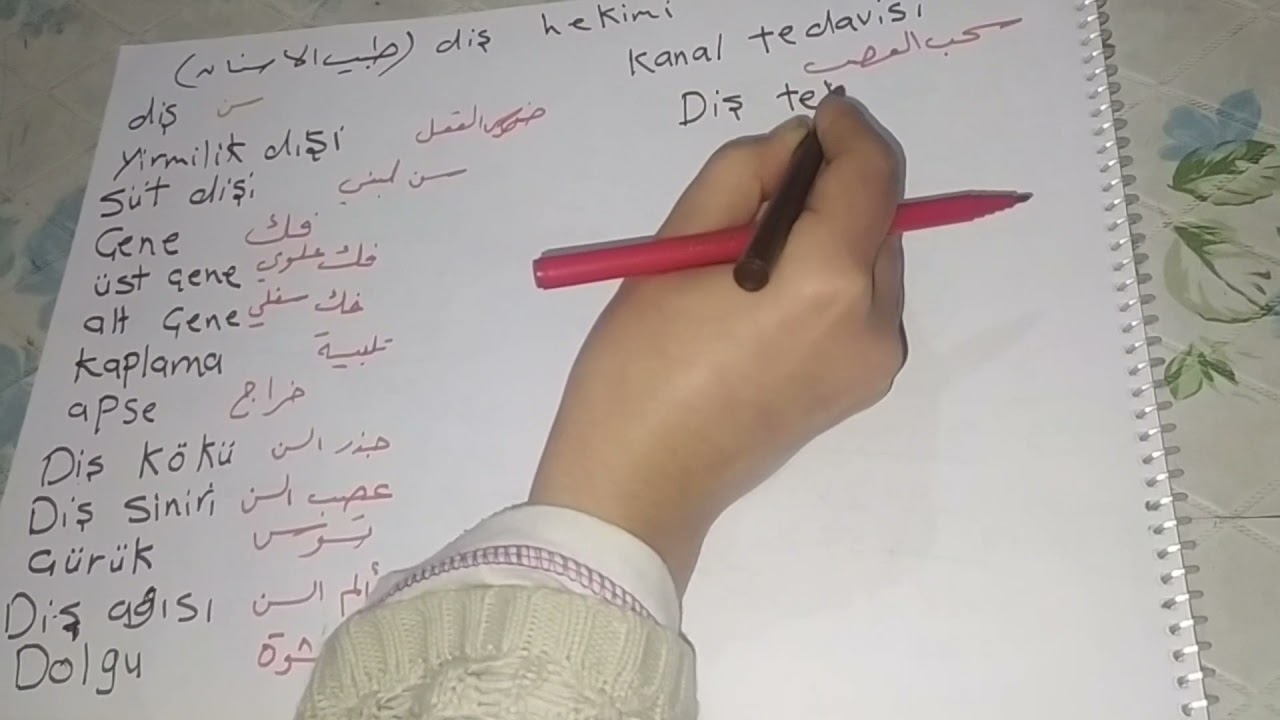 diş hekimi (طبيب الاسنان)
diş سن
yirmilik dişi ضرس العقل
süt dişi سن لبني
Gene فك
üst gene فك علوي
alt Gene فك سفلي
kaplama تلبيسة
apse خراج
Diş kökü جذر السن
Diş siniri عصب السن
Gürük تسوس
Diş ağısı ألم السن
Dolgu
Kanal tedavisi
سحب العصب
Diş